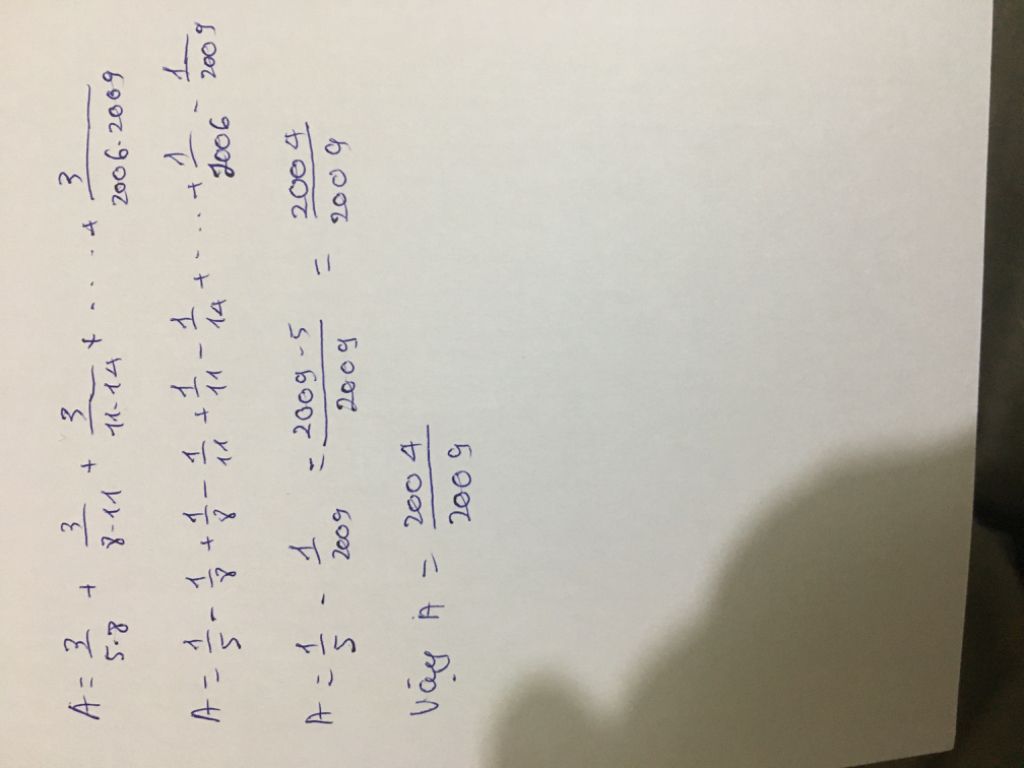 A = 3/5.8 + 3/8.11 + 3/11.14 + ... + 3/2006.2009
A = 1/5 - 1/8 + 1/8 - 1/11 + 1/11 - 1/14 + ... + 1/2006 - 1/2009
A = 1/5 - 1/2009 = 2009 - 5/2009 = 2004/2009
Vậy A = 2004/2009